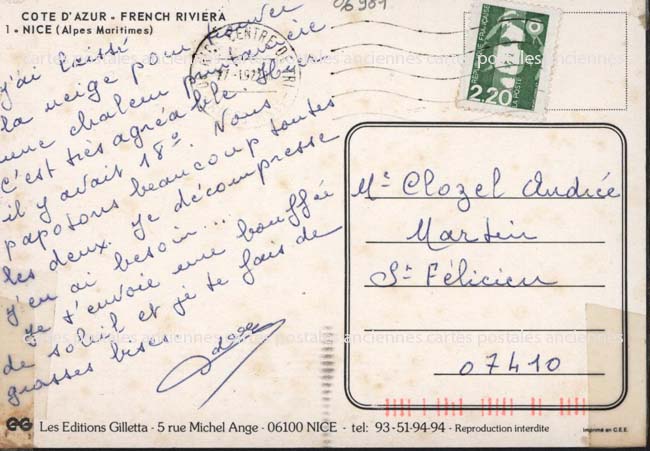 COTE D'AZUR - FRENCH RIVIERA
1 - NICE (Alpes Maritimes)
J'ai laissé
la neige pour trouver
une chaleur printanière
C'est très agréable. Hier
il y avait 18°. Nous
papotons beaucoup toutes
les deux. Je décompresse
j'en ai besoin...
Je t'envoie une bouffée
de soleil et je te fais de
grosses bises
06 981
CENTRE
REPUBLIQUE FRANÇAISE
LA POSTE
2,20
Me Clozel Andrée
Martin
St Félicien
07410
cartes postales anciennes cartes postales anciennes
Les Editions Gilletta - 5 rue Michel Ange - 06100 NICE - tel: 93-51-94-94 - Reproduction interdite
Imprimé en C.E.E.